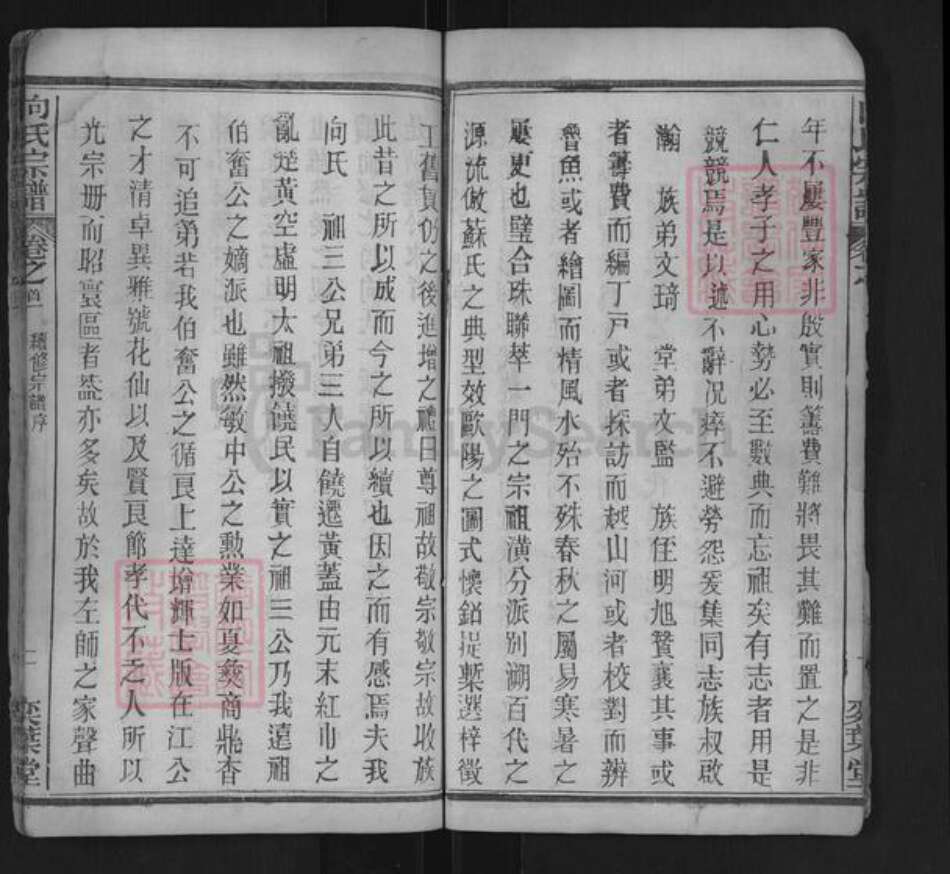 年不屢豐家非殷實則籌費難將畏其難而置之是非
仁人孝子之用心勢必至數典而忘祖矣有志者用是
競競焉是以遂不辭況瘁不避勞怨爰集同志族叔啟
瀚 族弟文琦 堂弟文監 族侄明旭贊襄其事或
者籌費而編丁戸或者採訪而越山河或者校對而辨
魯魚或者繪圖而情風水殆不殊春秋之屬易寒暑之
屢更也璧合珠聯萃一門之宗祖潢分派別溯百代之
源流倣蘇氏之典型效歐陽之圖式懷鉛握槧選梓徵
工舊貫仍之後進增之禮曰尊祖故敬宗敬宗故收族
此昔之所以成而今之所以續也因之而有感焉夫我
向氏 祖三公兄弟三人自饒遷黃蓋由元末紅巾之
亂楚黃空虛明太祖撥饒民以實之祖三公乃我遠祖
伯奮公之嫡派也雖然敏中公之勲業如夏彜商鼎杳
不可追第若我伯奮公之循良上達增輝士版在江公
之才清卓異雅號花仙以及賢良節孝代不乏人所以
光宗冊而昭寰區者葢亦多矣故於我左師之家聲曲
向氏宗譜
卷之首
續修宗譜序
一
奕葉堂
FamilySearch